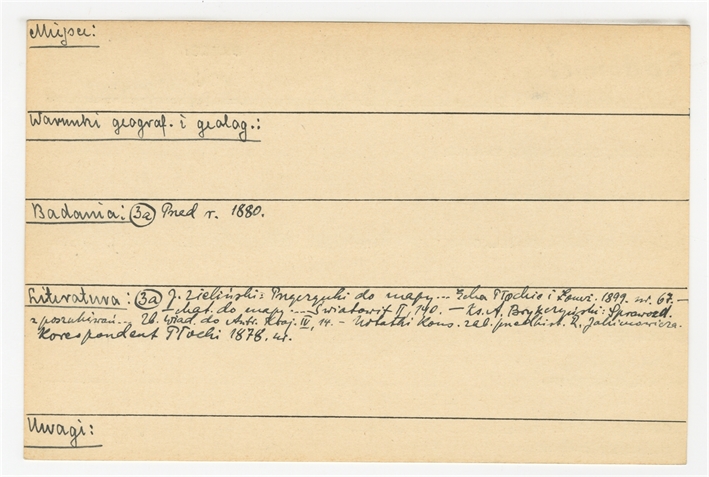 Miejsce:
Warunki geograf. i geolog.:
Badania: (3a) Przed r. 1880.
Literatura: (3a) J. Zieliński: Przyczynki do mapy... Echa Płockie i Łomż. 1899. nr. 67. —
— Mat. do mapy ... Światowit II, 140. — Ks. A. Brykczyński: Sprawozd.
z poszukiwań... Zb. Wiad. do Antr. Kraj. IV, 14. — Notatki Kons. zab. przedhist. R. Jakimowicza.
Korespondent Płocki 1878. nr.
Uwagi: